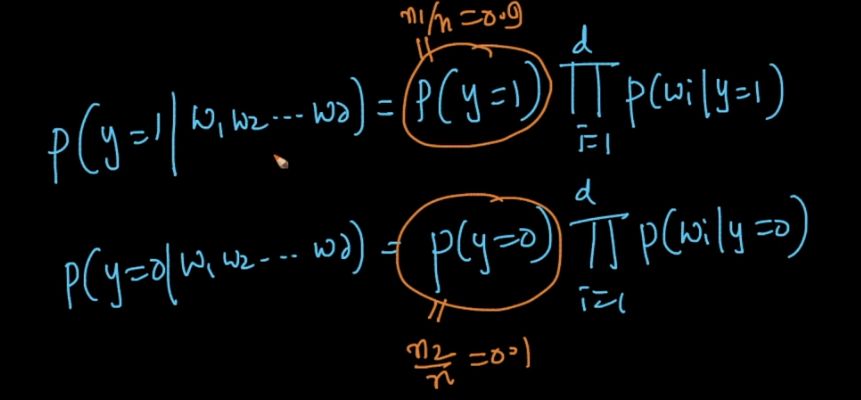 n1/n = 0.9
P(y=1|w1 w2 ... wd) = P(y=1) ∏ i=1 d P(wi|y=1)
P(y=0|w1 w2 ... wd) = P(y=0) ∏ i=1 d P(wi|y=0)
n2/n = 0.1